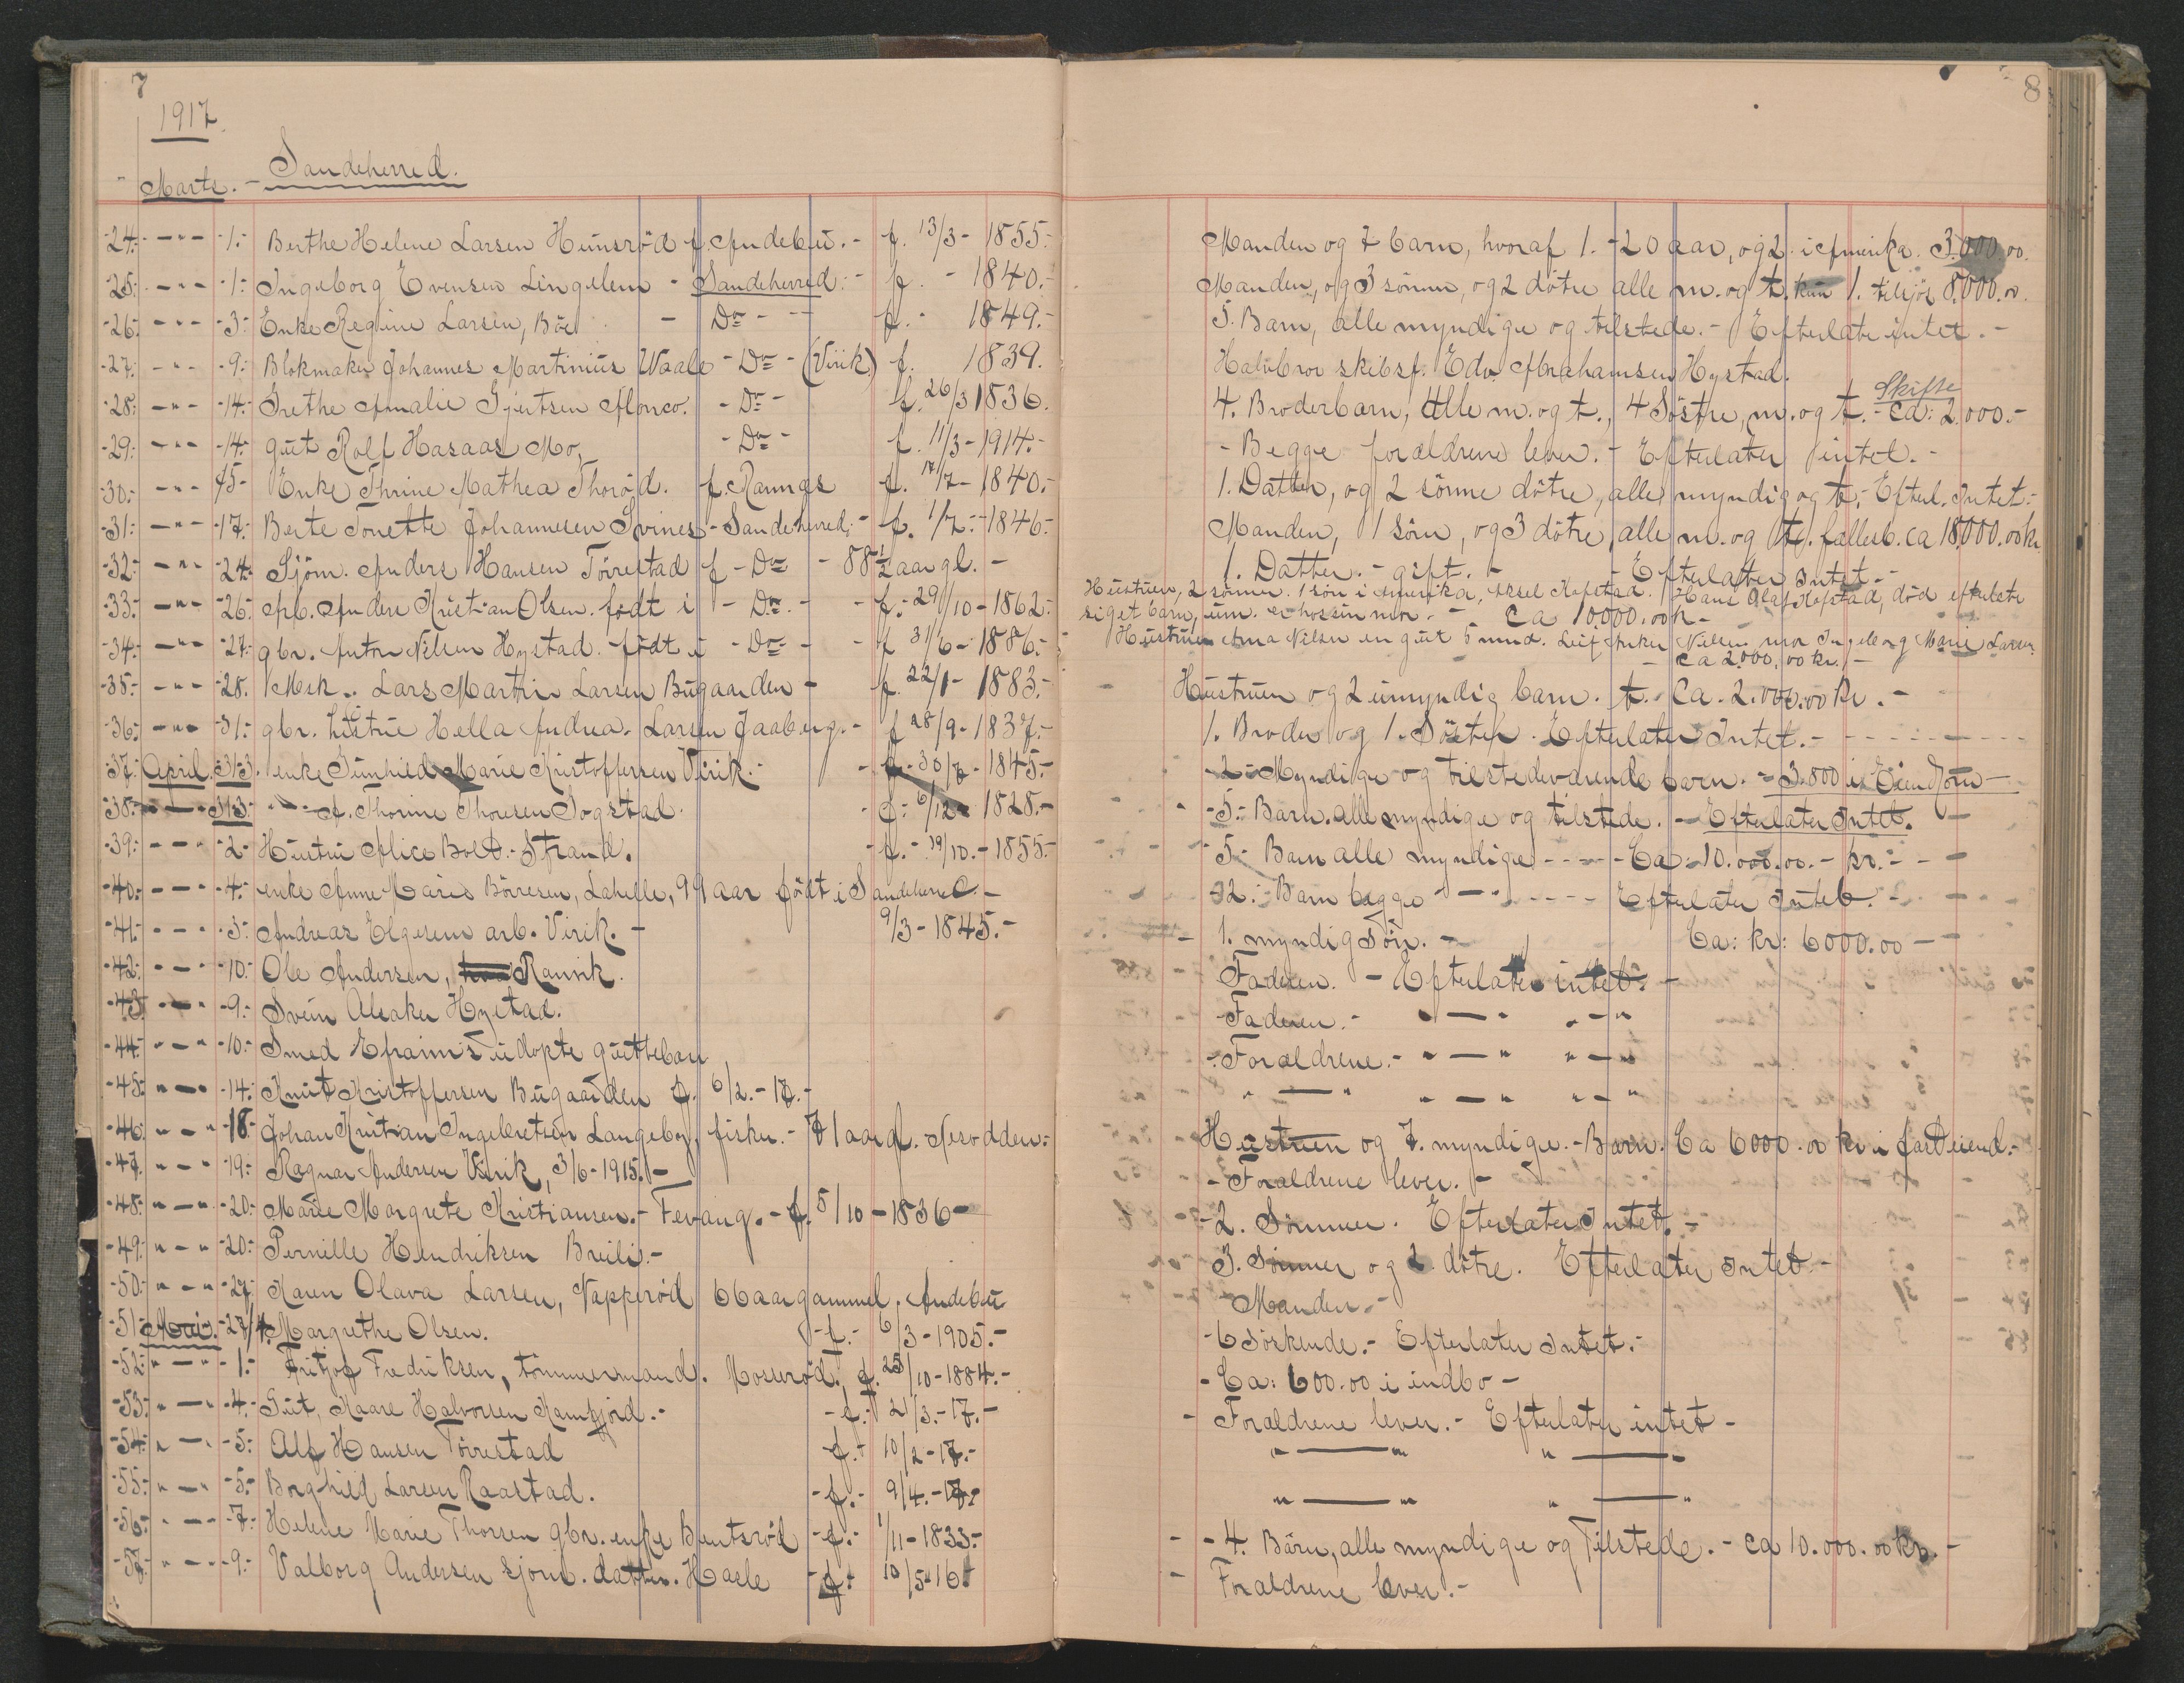 7
1917.
Marts. - Sandeherred.
-24.- -"- -1.- Berthe Helene Larsen Hunsrød f. Andebu. - f. 13/3 - 1855.-
-25.- -"- -1.- Ingeborg Evensen Lingelem - Sandeherred.- f. - 1840.-
-26.- -"- -3.- Enke Regine Larsen, Bøe - Do - f. - 1849.-
-27.- -"- -9.- Blokmaker Johannes Martinius Waale - Do - (Virik) f. 1839.
-28.- -"- -14.- Grethe Amalie Gjertsen - Do - f. 26/3 1836.
-29.- -"- -14.- gut Rolf Hasaas Mo, - Do - f. 11/3 - 1914.-
-30.- -"- 15- Enke Thrine Mathea Thorød. f. Ramnes f. 17/7 - 1840.-
-31.- -"- -17.- Berte Tonette Johannesen Svines - Sandeherred.- f. 1/7.- 1846.-
-32.- -"- -24.- Sjöm. Anders Hansen Törrestad f - Do - 88 1/2 aar gl. -
-33.- -"- -26.- Arb. Andere Kristian Olsen. födt i - Do. - f.- 29/10 - 1862.-
-34.- -"- -27.- gbr. Anton Nilsen Hystad. födt i - Do - f 31/6 - 1886.-
-35.- -"- -28. Mek.. Lars Martin Larsen Bugaarden - f. 22/1 - 1883.-
-36.- -"- -31.- gbr. hustru Hella Andrea. Larsen Jaaberg.- f 28/9 - 1837.-
-37. April. 31/3. enke Gunhild Marie Kristoffersen Virik.- f - 30/7 - 1845.-
-38.- -"- 31/3.- -"- A. Thorine Thoresen Sogstad. - f.- 6/12 - 1828.-
-39.- -"- -2- Hustru Alice Bolt.- Strand. - f. - 19/10. - 1855.-
-40.- -"- -4.- enke Anne Maris Börresen, Lahelle, 99 aar födt i Sandeherred. -
-41.- -"- -5.- Andreas Elgesem arb. Virik. - 9/3 - 1845.-
-42.- -"- -10.- Ole Andersen, Ranvik.
-43. -"- -9.- Svein Aleaker Hystad.
-44.- "-" -10.- Smed Efraims udöpte guttebarn
-45.- "-" -14.- Knut Kristoffersen Bugaarden f. 6/2. - 17.-
-46.- "-" -18.- Johan Kristian Ingebretsen Langeby, fisker. - 71 aar gl. Nesodden.-
-47. "-" -19.- Ragnar Andersen Virik, 3/6 - 1915.-
-48.- "-" -20.- Marie Margrete Kristiansen. - Fevang. - f. 5/10 - 1836 -
-49.- "-" -20.- Pernille Hendriksen Breili.-
-50.- "-" -27.- Karen Olava Larsen, Napperød 66 aar gammel. Andebu
-51- Mai. -27/4. Margrethe Olsen. - f. - 6/3 - 1905.-
-52.- "-" -1.- Fritjof Fredriksen, tömmermand. Moserød., f. 25/10 - 1884.-
-53.- "-" -4.- Gut, Kaare Halvorsen Kamfjord.- - f. - 21/3. - 17.-
-54.- "-" -5.- Alf Hansen Törrestad - f. - 10/2 - 17.-
-55.- "-" -5.- Borghild Larsen Raastad. - f. - 9/4. - 17.
-56.- "-" -7.- Helene Marie Thorsen gbr. enke Bentsrød - f. - 1/11 - 1833.-
-57.- "-" -9.- Valborg Andersen sjöm. datter. Hasle - f. - 10/5 - 16.-
8
Manden og 7 barn, hvoraf 1. - 20 aar, og 2 i Amerika. 3.000.00.
Manden, og 3 sönner, og 2 dötre alle m. og t. kun 1. tilsjös 8.000.00.
5. Barn, alle myndige og tilstede. - Efterlater intet. -
Halvbror skibsf. Edv. Abrahamsen Hystad.
4. Broderbarn, Alle m. og t., 4 Söstre, m. og t. - Skifte Ca: 2.000.-
- Begge forældrene lever. - Efterlater intet. -
1. Datter, og 2 sönne dötre, alle myndig og t.- Efterl. Intet.-
Manden, 1 sön, og 3 dötre, alle m. og t. fællesb. ca 18.000.00 kr
1. Datter. - gift. - - Efterlatter Intet. -
Hustruen, 2 sönner. 1 sön i Amerika, Aksel Kofstad. Hans Olaf Kofstad, död efterlate
siget barn, um. er hos sin mor. - Ca 10.000.00 K -
Hustruen Anna Nilsen en gut 5 mnd. Leif Anker Nilsen mor Ingeborg Marie Larsen
- ca 2.000,00 kr. -
- Hustruen og 2 umyndig barn. t. - Ca. 2.000.00 Kr. -
1. Broder og 1. Söster. Efterlater Intet. -
-2.- Myndige og tilstedeværende barn. - 3.800 i Eiendom -
-5.- Barn. alle myndige og tilstede. - Efterlater Intet. -
-5- Barn alle myndige - - - - Ca: 10.000.00. - kr. - -
-2.- Barn begge - " - - - - Efterlater Intet. -
- 1. myndig sön. - Ca: kr: 6000.00 -
Faderen. - Efterlater intet. -
- Faderen. - " - " " - "
- Forældrene. - " - " " - "
" - " " - " " - "
Hustruen og 7. myndige. - Barn. Ca 6000.00 kr i fast eiend.-
- Forældrene lever. -
-2. Sönner. Efterlater Intet. -
3. Sönner og 2. dötre. Efterlater Intet -
- Manden. -
- 6 söskende. - Efterlater Intet.-
- Ca: 600.00 i indbo -
- Forældrene lever. - Efterlater intet -
" - " " - "
" - " " - "
- - 4. Barn, alle myndige og Tilstede. - ca 10.000.00 kr. -
- Forældrene lever. -